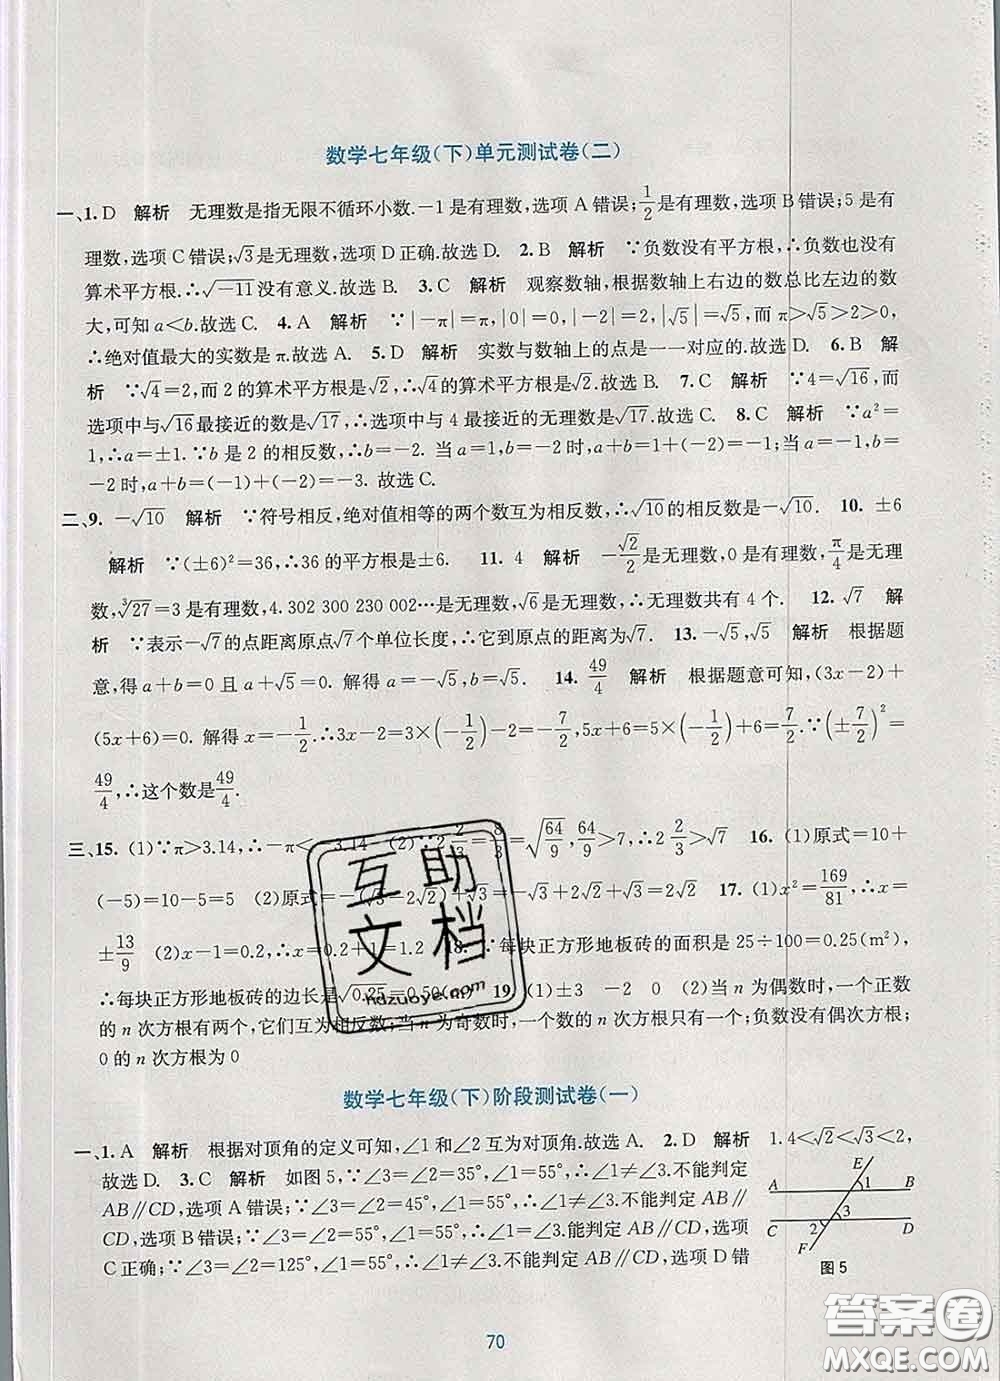 数学七年级(下)单元测试卷(二)
一、1. D 解析 无理数是指无限不循环小数.-1是有理数,选项A错误;1/2是有理数,选项B错误;5是有
理数,选项C错误;√3是无理数,选项D正确.故选D. 2. B 解析 ∵负数没有平方根,∴负数也没有
算术平方根.∴√-11没有意义.故选B. 3. C 解析 观察数轴,根据数轴上右边的数总比左边的数
大,可知a<b.故选C. 4. A 解析 ∵|-π|=π,|0|=0,|-2|=2,|√5|=√5,而π>√5>2>0,
∴绝对值最大的实数是π.故选A. 5. D 解析 实数与数轴上的点是一一对应的.故选D. 6. B 解
析 ∵√4=2,而2的算术平方根是√2,∴√4的算术平方根是√2.故选B. 7. C 解析 ∵4=√16,而
选项中与√16最接近的数是√17,∴选项中与4最接近的无理数是√17.故选C. 8. C 解析 ∵a²=
1,∴a=±1.∵b是2的相反数,∴b=-2. 当a=1,b=-2时,a+b=1+(-2)=-1;当a=-1,b=
-2时,a+b=(-1)+(-2)=-3. 故选C.
二、9. -√10 解析 ∵符号相反,绝对值相等的两个数互为相反数,∴√10的相反数是-√10. 10. ±6
解析 ∵(±6)²=36,∴36的平方根是±6. 11. 4 解析 -√2/2是无理数,0是有理数,π/4是无理
数,∛27=3是有理数,4.302 300 230 002…是无理数,√6是无理数,∴无理数共有4个. 12. √7 解
析 ∵表示-√7的点距离原点√7个单位长度,∴它到原点的距离为√7. 13. -√5,√5 解析 根据题
意,得a+b=0且a+√5=0. 解得a=-√5,b=√5. 14. 49/4 解析 根据题意可知,(3x-2)+
(5x+6)=0. 解得x=-1/2.∴3x-2=3×(-1/2)-2=-7/2,5x+6=5×(-1/2)+6=7/2.∵(±7/2)²=
49/4,∴这个数是49/4.
三、15. (1)∵π>3.14,∴-π<-3.14 (2)∵2 2/3=8/3=√64/9,64/9>7,∴2 2/3>√7 16. (1)原式=10+
(-5)=10-5=5 (2)原式=(-1+2)√3+2√2=-√3+2√2+√3=2√2 17. (1)x²=169/81,∴x=
±13/9 (2)x-1=0.2,∴x=0.2+1=1.2 18. ∵每块正方形地板砖的面积是25÷100=0.25(m²),
∴每块正方形地板砖的边长是√0.25=0.50(m) 19. (1)±3 -2 0 (2)当n为偶数时,一个正数
的n次方根有两个,它们互为相反数;当n为奇数时,一个数的n次方根只有一个;负数没有偶次方根;
0的n次方根为0
数学七年级(下)阶段测试卷(一)
一、1. A 解析 根据对顶角的定义可知,∠1和∠2互为对顶角.故选A. 2. D 解析 1.4<√2<√3<2,
故选D. 3. C 解析 如图5,∵∠3=∠2=35°,∠1=55°,∴∠1≠∠3.不能判定
AB∥CD,选项A错误;∵∠3=∠2=45°,∠1=55°,∴∠1≠∠3.不能判定AB∥
CD,选项B错误;∵∠3=∠2=55°,∠1=55°,∴∠1=∠3.能判定AB∥CD,选项
C正确;∵∠3=∠2=125°,∠1=55°,∴∠1≠∠3.不能判定AB∥CD,选项D错
E
A 1 B
3
C 2 D
F
图5
70
互助
文档
hdzuoye.com
答案卷
MXQE.COM